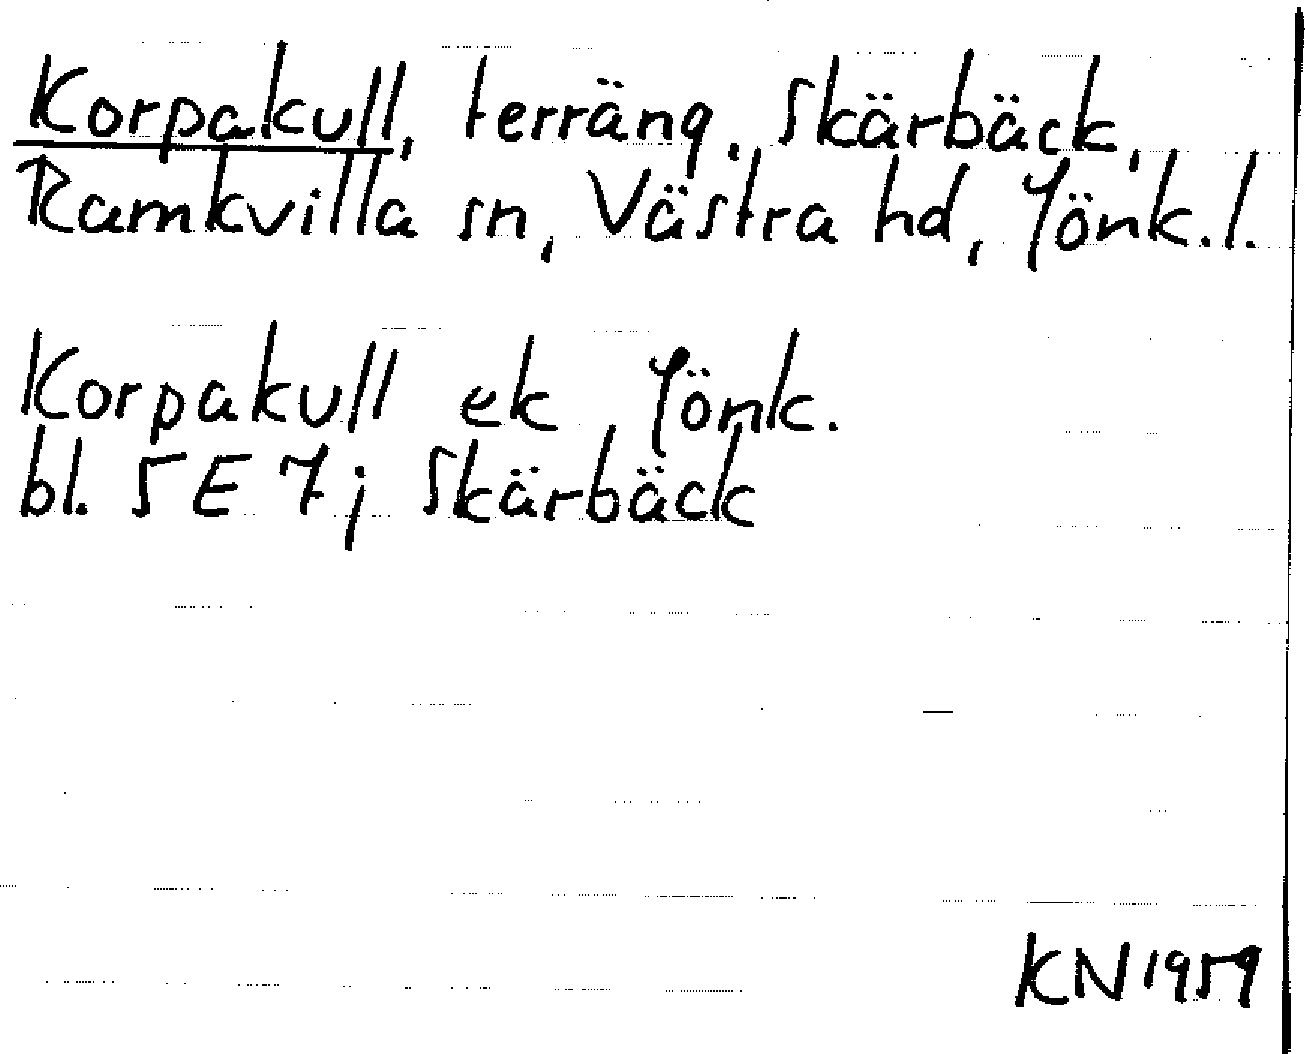 Korpakull, terräng, Skärbäck,
Ramkvilla sn, Västra hd, Jönk. l.
Korpakull ek Jönk.
bl. 5 E 7 j Skärbäck
KN 1959